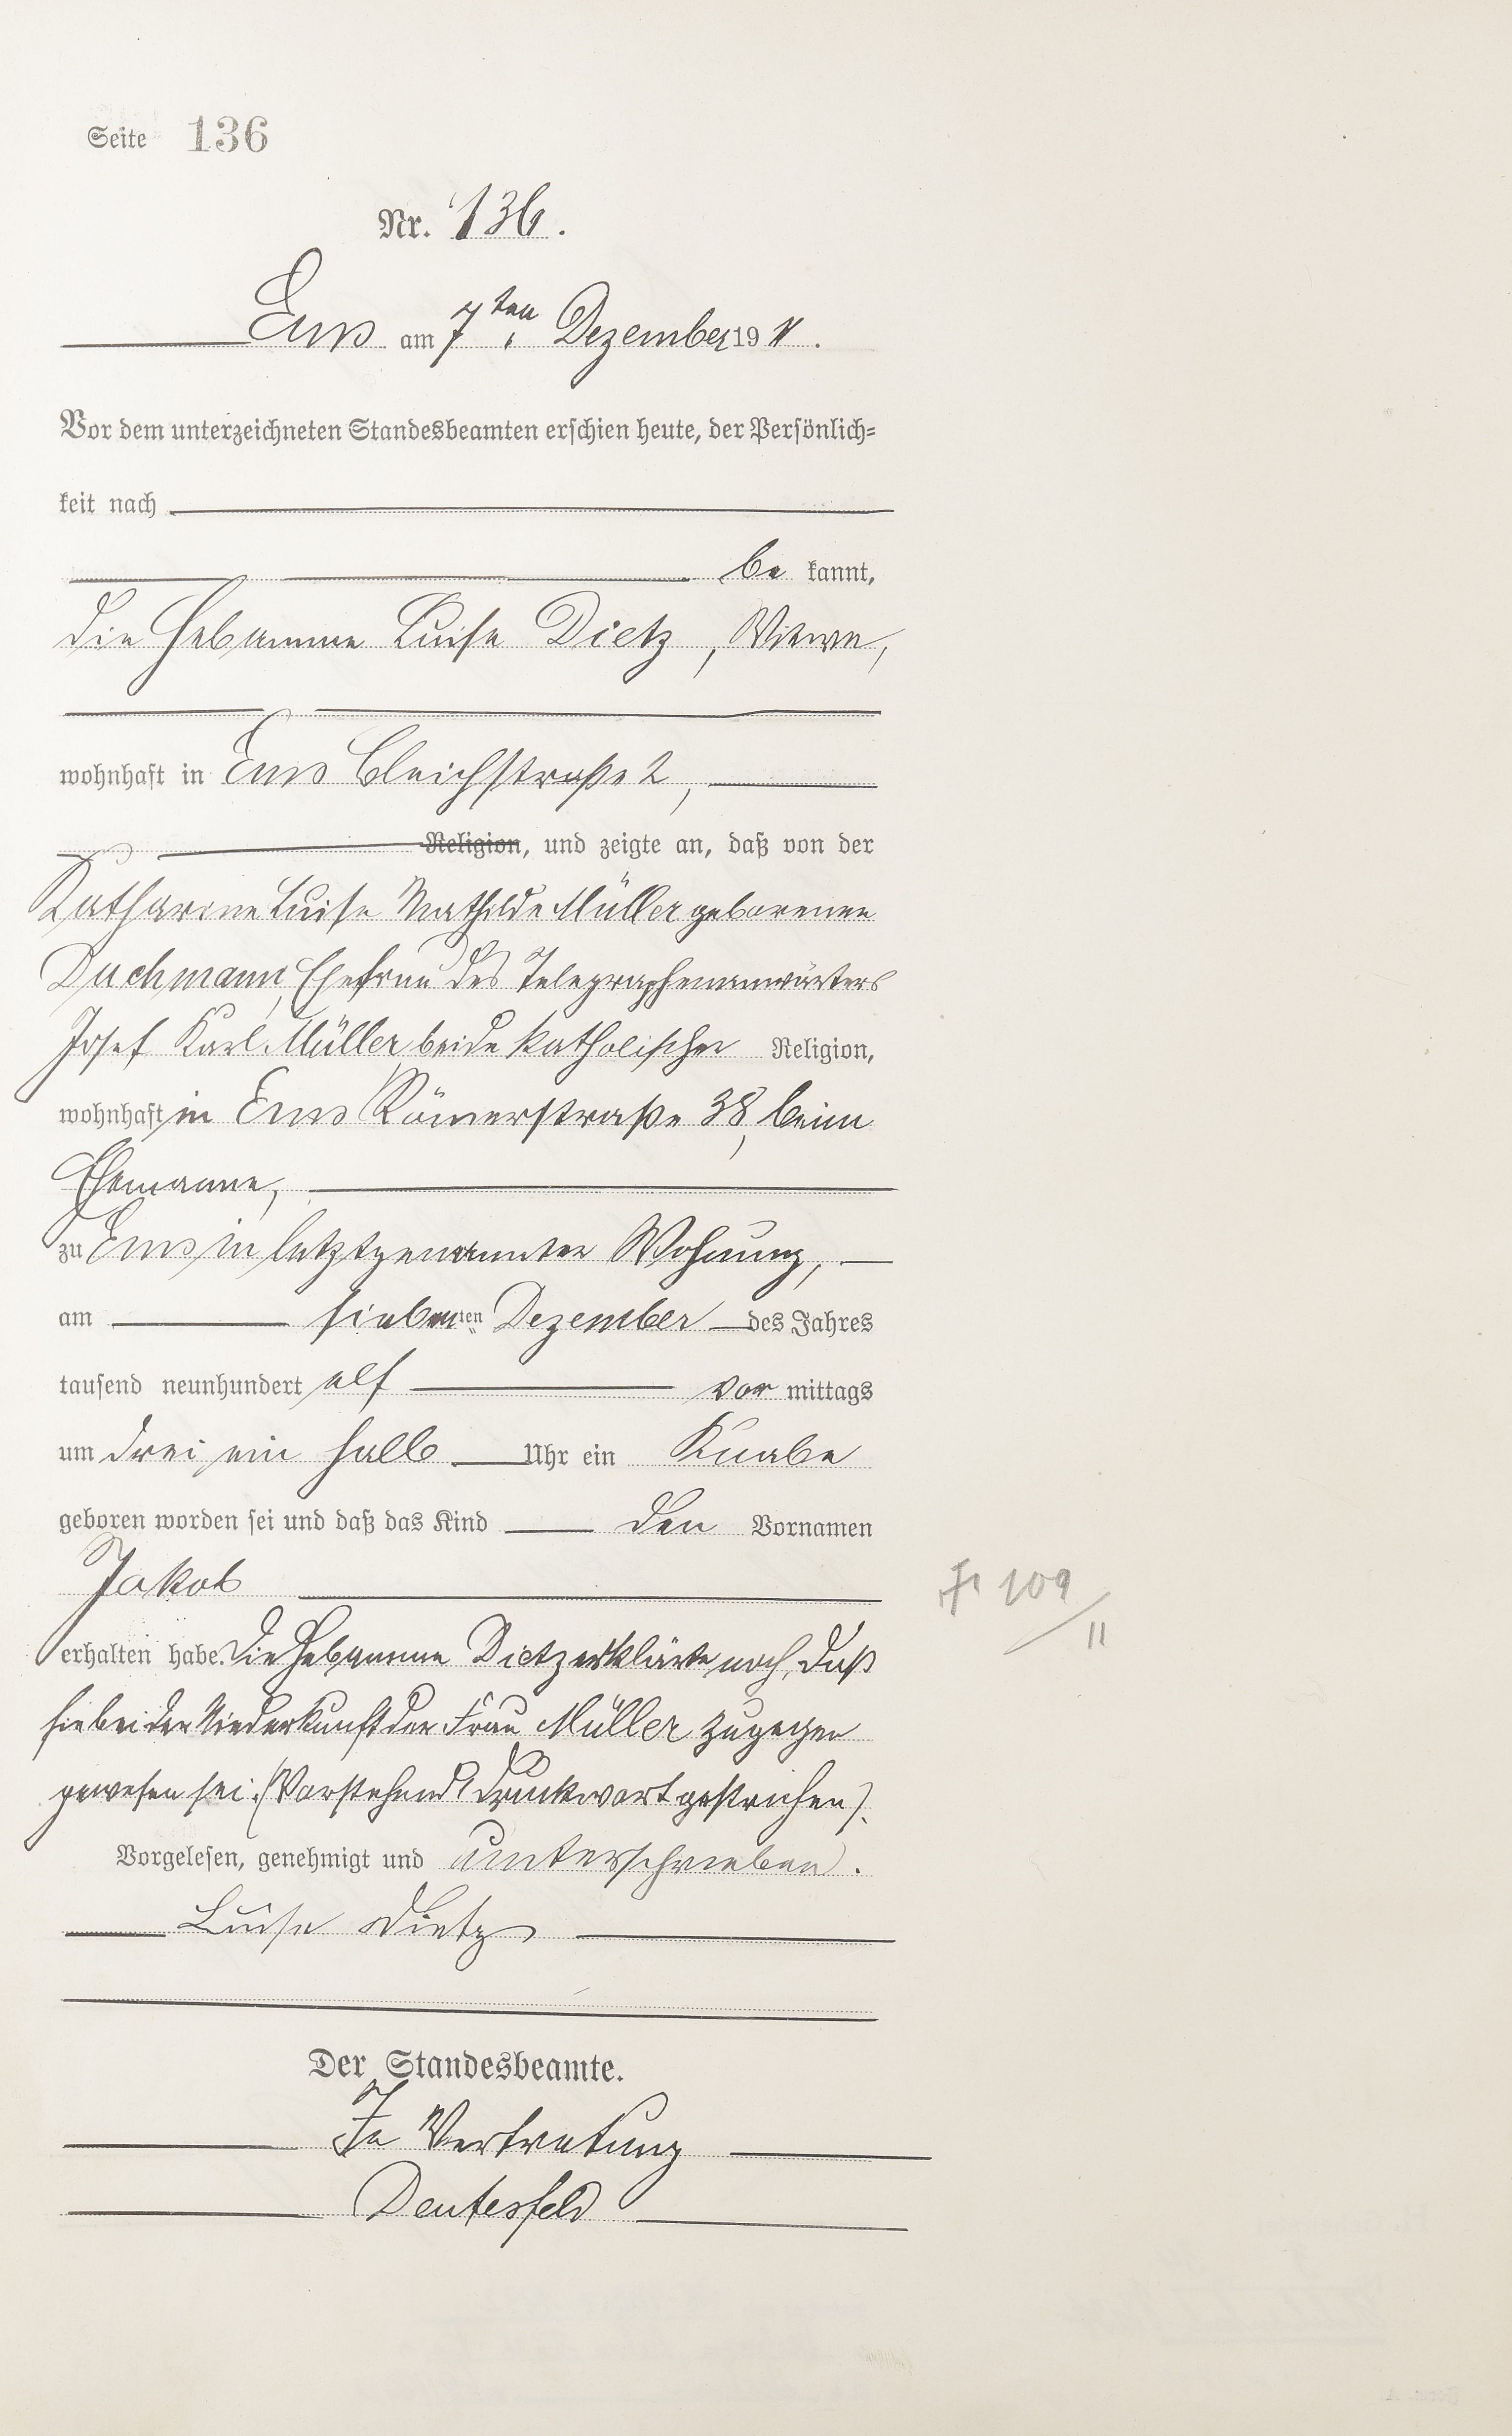 Seite 136
Nr. 136.
Ems am 7ten Dezember 1911.
Vor dem unterzeichneten Standesbeamten erschien heute, der Persönlich=
keit nach
be kannt,
die Hebamme Luise Dietz, Witwe,
wohnhaft in Ems Bleichstraße 2,
Religion, und zeigte an, daß von der
Katharine Luise Mathilde Müller geborenen
Duchmann, Ehefrau des Telegraphenanwärters
Josef Karl Müller beide katholischer Religion,
wohnhaft in Ems Römerstraße 38, beim
Ehemanne,
zu Ems in letztgenannter Wohnung,
am siebenten Dezember des Jahres
tausend neunhundert elf vor mittags
um drei ein halb Uhr ein Knabe
geboren worden sei und daß das Kind den Vornamen
Jakob
erhalten habe. Die Hebamme Dietz erklärte noch, daß
sie bei der Niederkunft der Frau Müller zugegen
gewesen sei. (Vorstehend 1 Druckwort gestrichen).
Vorgelesen, genehmigt und unterschrieben.
Luise Dietz
Der Standesbeamte.
In Vertretung
Deutesfeld
109
11